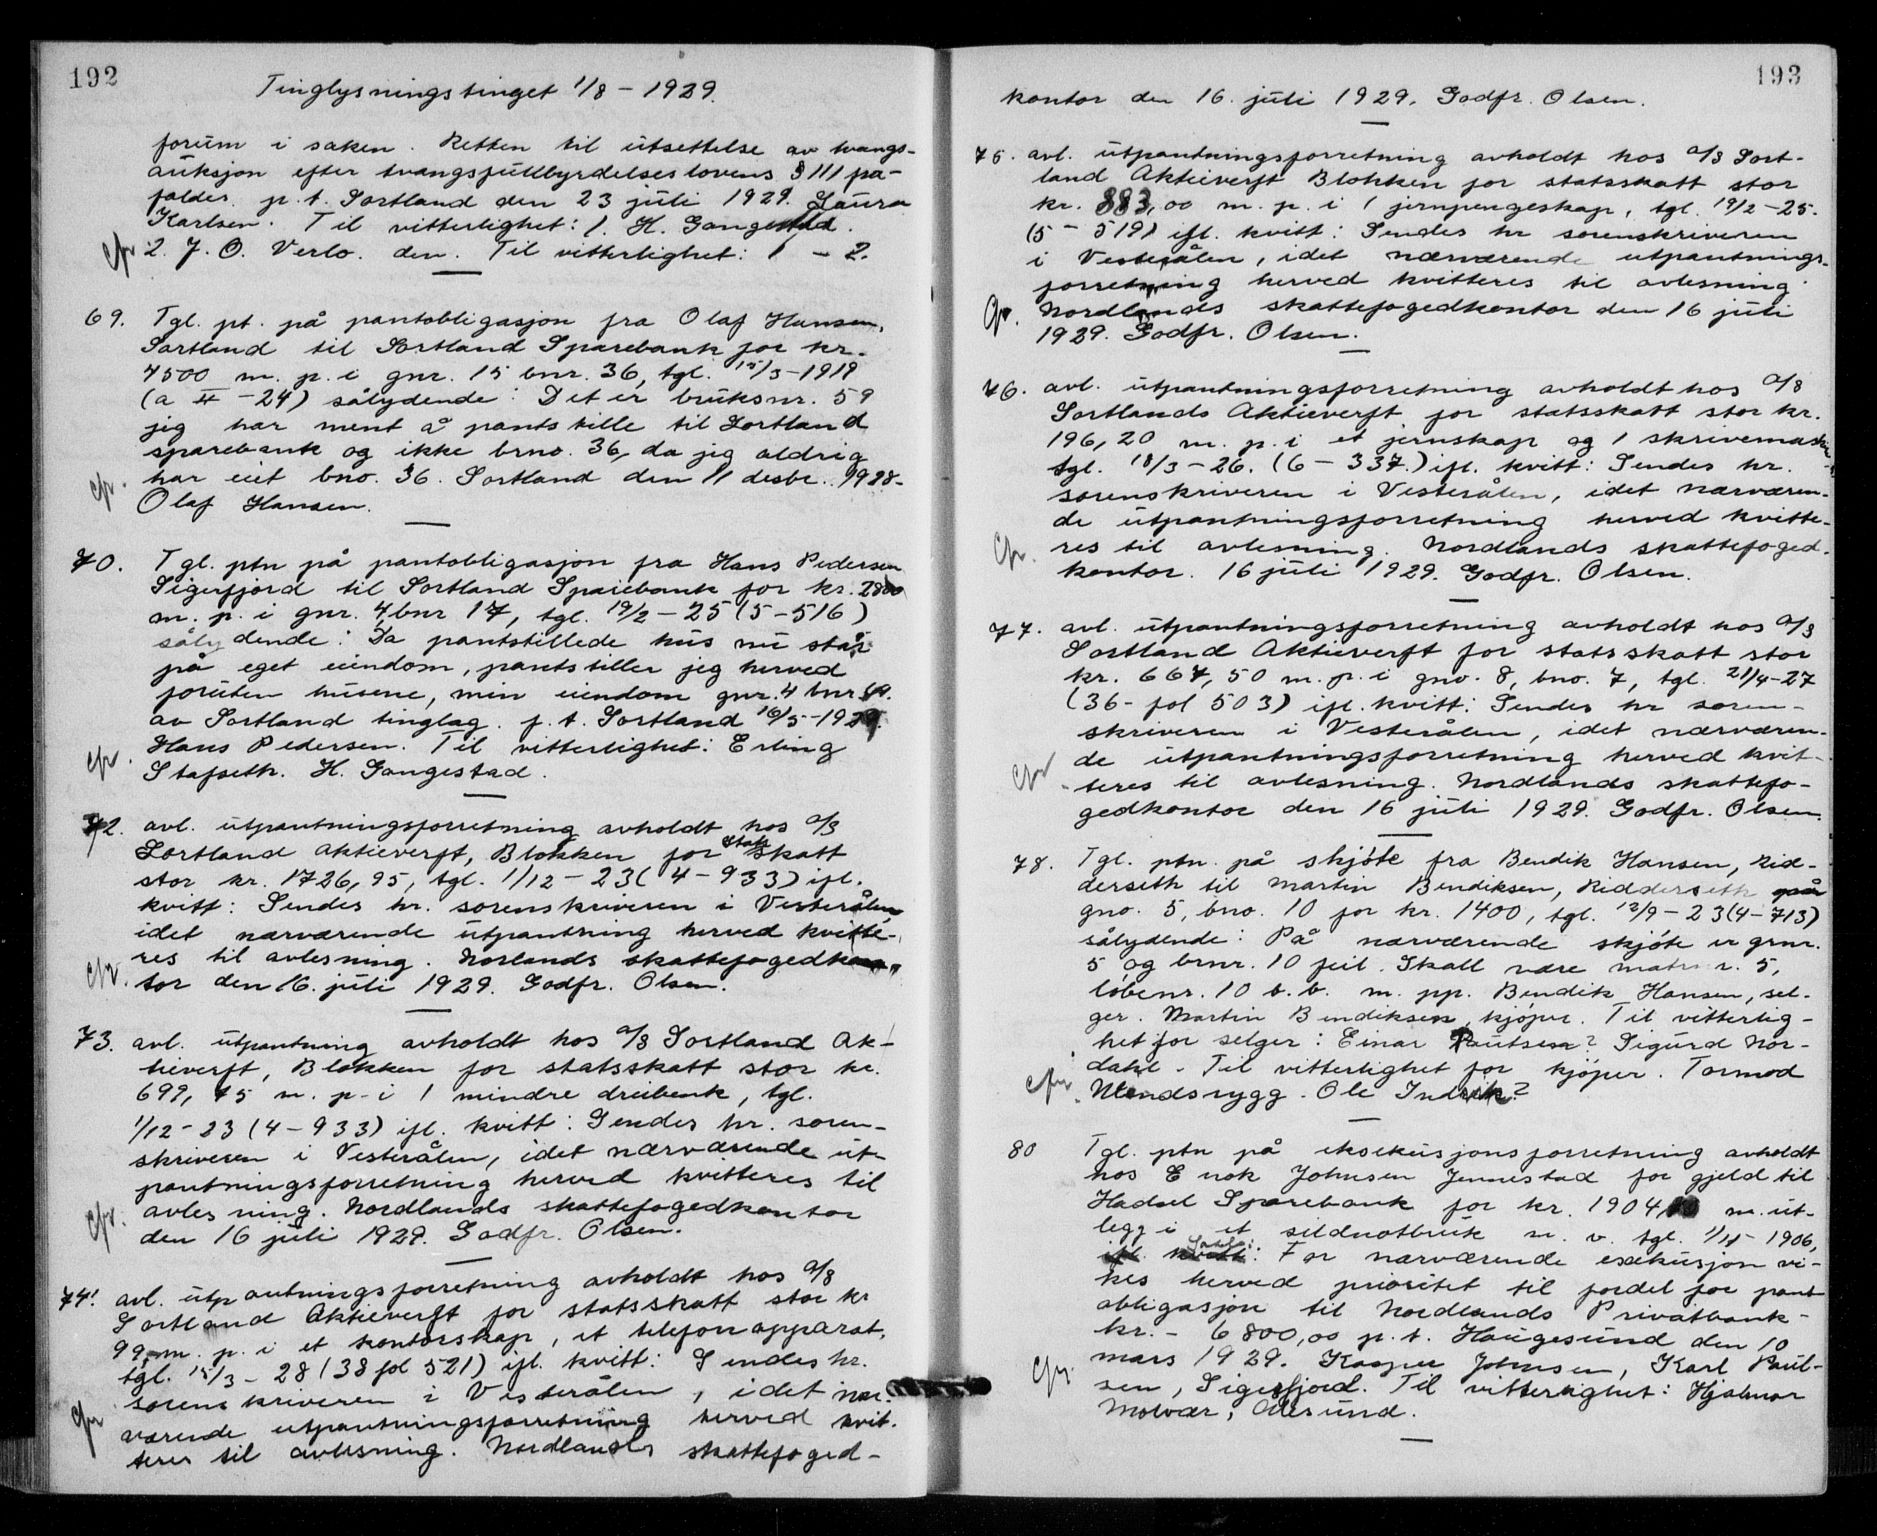 192
Tinglysningstinget 1/8 - 1929.
forum i saken. Retten til utsettelse av tvangs-
auksjon efter tvangsfullbyrdelseslovens § 111 fra-
faldes. p.t. Sortland den 23 juli 1929. Laura
Karlsen. Til vitterlighet: 1. H. Gangestad.
2. J. O. Verlo. den. Til vitterlighet: 1 - 2.
69. Tgl. pt. på pantobligasjon fra Olaf Hansen,
Sortland til Sortland Sparebank for kr.
4500 m. p. i gnr. 15 bnr. 36, tgl. 15/3-1919
(a II - 24) sålydende: Det er bruksnr. 59
jig har ment å pantstille til Sortland
sparebank og ikke brno. 36, da jig aldrig
har eiet bno. 36. Sortland den 11 desbr. 1928.
Olaf Hansen.
70. Tgl. ptn på pantobligasjon fra Hans Pedersen
Sigerfjord til Sortland Sparebank for kr. 2800
m. p. i gnr. 4, bnr 17, tgl. 19/2 - 25 (5-516)
sålydende: Da pantstillede hus nu står
på eget eiendom, pantstiller jeg herved
foruten husene, min eiendom gnr. 4 bnr
av Sortland tinglag. p. t. Sortland 16/5-1929.
Hans Pedersen. Til vitterlighet: Erling
Stafseth. H. Gangestad.
72. avl. utpantningsforretning avholdt hos a/s
Sortland Aktieverft, Blokken for Statsskatt
stor kr. 1726,95, tgl. 1/12 - 23 (4-933) ifl.
kvitt: Sendes hr. sorenskriveren i Vesterålen
idet nærværende utpantning herved kvitte-
res til avlesning. Norlands skattefogedkon-
tor den 16. juli 1929. Godfr. Olsen.
73. avl. utpantning avholdt hos a/s Sortland Ak-
tieverft, Blokken for statsskatt stor kr.
699,45 m. p. i 1 mindre dreibenk, tgl.
1/12-23 (4-933) ifl. kvitt: Sendes hr. soren-
skriveren i Vesterålen, idet nærværende ut-
pantningsforretning herved kvitteres til
avlesning. Nordlands skattefogedkontor
den 16 juli 1929. Godfr. Olsen.
74. avl. utpantningsforretning avholdt hos a/s
Sortland Aktieverft for statsskatt stor kr
99, m. p. i et kontorskap, et telefonapparat,
tgl. 15/3 - 28 (38 fol 521) ifl. kvitt: Sendes hr.
sorenskriveren i Vesterålen, idet nær-
værende utpantningsforretning herved kvit-
teres til avlesning. Nordlands skattefoged-
193
kontor den 16. juli 1929. Godfr. Olsen.
75. avl. utpantningsforretning avholdt hos a/s Sort-
land Aktieverft Blokken for statsskatt stor
kr. 883,00 m. p. i 1 jernpengeskap, tgl. 19/2-25.
(5 - 519) ifl. kvitt: Sendes hr sorenskriveren
i Vesterålen, idet nærværende utpantnings-
forretning herved kvitteres til avlesning
Nordlands skattefogedkontor den 16 juli
1929. Godfr. Olsen.
76. avl. utpantningsforretning avholdt hos a/s
Sortlands Aktieverft for statsskatt stor kr.
196,20 m. p. i et jernskap og 1 skrivemaskin
tgl. 18/3-26. (6-337.) ifl. kvitt: Sendes hr.
sorenskriveren i Vesterålen, idet nærværen-
de utpantningsforretning herved kvitte-
res til avlesning. Nordlands skattefoged-
kontor. 16 juli 1929. Godfr. Olsen.
77. avl. utpantningsforretning avholdt hos a/s
Sortland Aktieverft for statsskatt stor
kr. 667,50 m. p. i gno. 8, bno. 7, tgl. 21/4-27
(36- fol 503) ifl. kvitt: Sendes hr soren-
skriveren i Vesterålen, idet nærværen-
de utpantningsforretning herved kvit-
teres til avlesning. Nordlands skattefo-
gedkontor den 16 juli 1929. Godfr. Olsen.
78. Tgl. ptn. på skjøte fra Bendik Hansen, Rid-
derseth til Martin Bendiksen, Ridderseth
gno. 5, bno. 10 for kr. 1400, tgl. 12/9-23 (4-713)
sålydende: På nærværende skjøte er grnr.
5 og brnr. 10 feil. Skall være matr nr. 5,
løbenr. 10 b. b. m. pp. Bendik Hansen, sel-
ger. Martin Bendiksen, kjøper. Til vitterlig-
het for selger: Einar Paulsen? Sigurd Nor-
dahl. Til vitterlighet for kjøper. Tormod
Ole Indvik?
80 Tgl. ptn på eksekusjonsforretning avholdt
hos Enok Johnsen Jennestad for gjeld til
Hadsel Sparebank for kr. 1904, m. ut-
legg i et sildnotbruk m. v. tgl. 1/11-1906,
: For nærværende exekusjon vi-
kes herved prioritet til fordel for pant
obligasjon til Nordlands Privatbank-
kr. - 6800,00 p. t. Haugesund den 10
mars 1929. Kasper Johnsen, Karl Paul-
sen, Sigerfjord. Til vitterlighet: Hjalmar
Molvær, Ålesund.